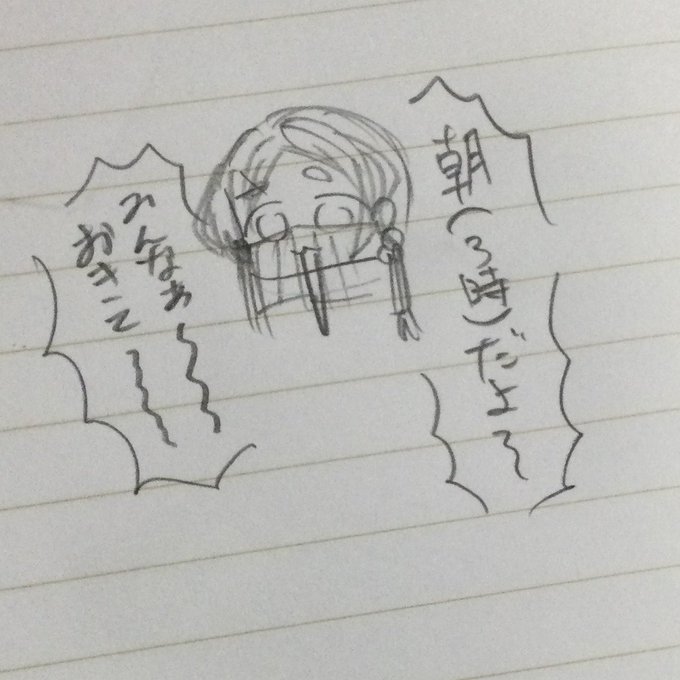 朝(3時)だよ〜
みんなぁ〜〜
おきて〜〜